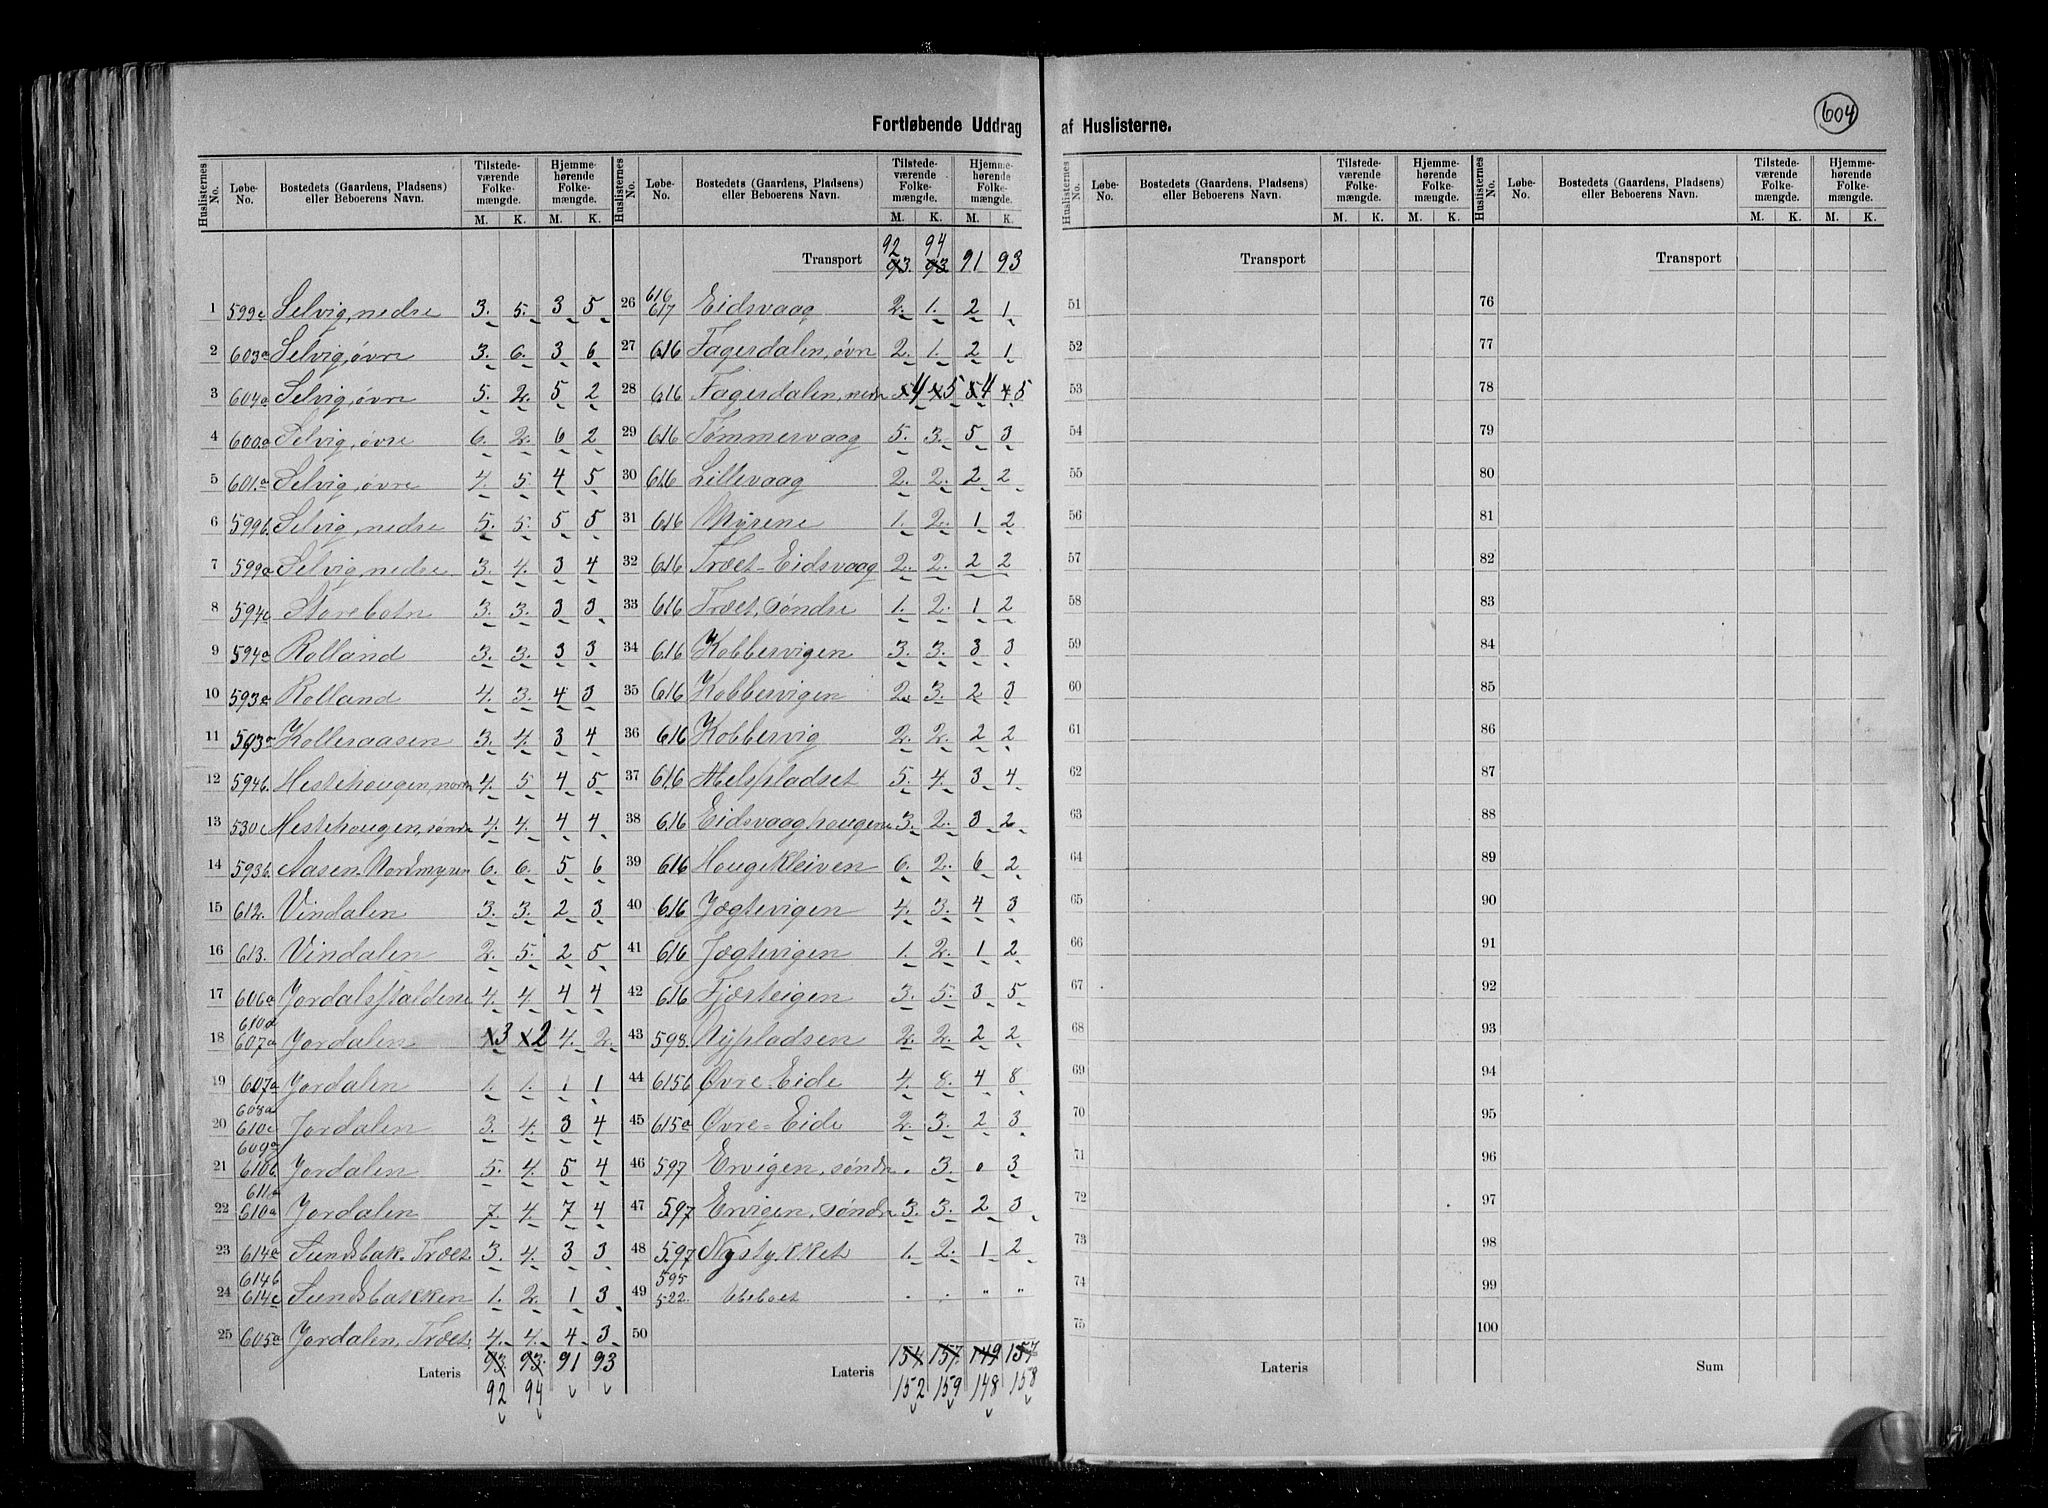 Fortløbende Uddrag af Huslisterne.
604
Huslisternes No. Løbe-No. Bostedets (Gaardens, Pladsens) eller Beboerens Navn. Tilstedeværende Folkemængde. M. K. Hjemmehørende Folkemængde. M. K.
1 599c Selvig, nedre 3. 5. 3 5
2 603a Selvig, øvre 3. 6. 3 6
3 604a Selvig, øvre 5. 2. 5 2
4 600a Selvig, øvre 6. 2. 6 2
5 601.a Selvig, øvre 4. 5. 4 5
6 599b. Selvig, nedre 5. 5. 5 5
7 599a Selvig, nedre 3. 4. 3 4
8 594c Storebotn 3. 3. 3 3
9 594a Rolland 3. 3. 3 3
10 593c Rolland 4. 3. 4 3
11 593a Kolleraasen 3. 4. 3 4
12 594b. Hestehougen, nordre 4. 5 4 5
13 530c Hestehougen, søndre 4. 4. 4 4
14 593b. Aasen-Nordmyren 6. 6. 5 6
15 612. Vindalen 3. 3. 2 3
16 613. Vindalen 2. 5. 2 5
17 606a Jordalsflaldene 4. 4. 4 4
18 610d 607a Jordalen 3 2 4. 2.
19 607a Jordalen 1. 1. 1 1
20 608a 610c Jordalen 3. 4. 3 4
21 609a 610b. Jordalen 5. 4. 5 4
22 611a 610a Jordalen 7. 4. 7 4
23 614a Sundsbak. Træet. 3. 4. 3 3
24 614b 614c Sundsbakken 1. 2. 1 3
25 605a Jordalen, Træet. 4. 4. 4 3
Lateris 93. 93. 91 93
92 94
Transport 93. 93. 91 93
92 94
26 616 617 Eidsvaag 2. 1. 2 1
27 616 Fagerdalen, øvre 2. 1. 2 1
28 616 Fagerdalen, nedre 4 5 4 5
29 616 Tømmervaag 5. 3. 5 3
30 616 Lillevaag 2. 2. 2 2
31 616 Myrene 1. 2. 1 2
32 616 Træet-Eidsvaag 2. 2. 2 2
33 616 Træet, søndre 1. 2. 1 2
34 616 Kobbervigen 3. 3. 3 3
35 616 Kobbervigen 2. 3. 2 3
36 616 Kobbervig 2. 2. 2 2
37 616 Melspladset 5. 4. 3 4
38 616 Eidsvaaghougene 3. 2. 3 2
39 616 Hougekleiven 6. 2. 6 2
40 616 Jægtevigen 4. 3. 4 3
41 616 Jægtevigen 1. 2. 1 2
42 616 Fjæsteigen 3. 5. 3 5
43 598. Nypladsen 2. 2. 2 2
44 615b Øvre-Eide 4. 8. 4 8
45 615a Øvre-Eide 2. 3. 2 3
46 597 Ervigen, søndre . 3. 0 3
47 597 Ervigen, søndre 3. 3. 2 3
48 597 Nystykket 1. 2. 1 2
49 595 522. Ubeboet . . " "
50
Lateris 154. 157. 149 157
152 159 148 158
Huslisternes No. Løbe-No. Bostedets (Gaardens, Pladsens) eller Beboerens Navn. Tilstedeværende Folkemængde. M. K. Hjemmehørende Folkemængde. M. K.
Transport
51
52
53
54
55
56
57
58
59
60
61
62
63
64
65
66
67
68
69
70
71
72
73
74
75
Lateris
Transport
76
77
78
79
80
81
82
83
84
85
86
87
88
89
90
91
92
93
94
95
96
97
98
99
100
Sum